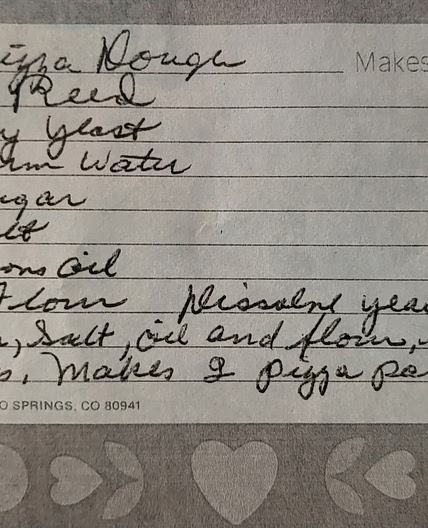 izza Dough Makes
Reed
y Yeast
rm Water
ugar
lt
ons Oil
Flour Dissolve yeas
, Salt, oil and flour,
s. Makes 2 pizza pa
O SPRINGS, CO 80941